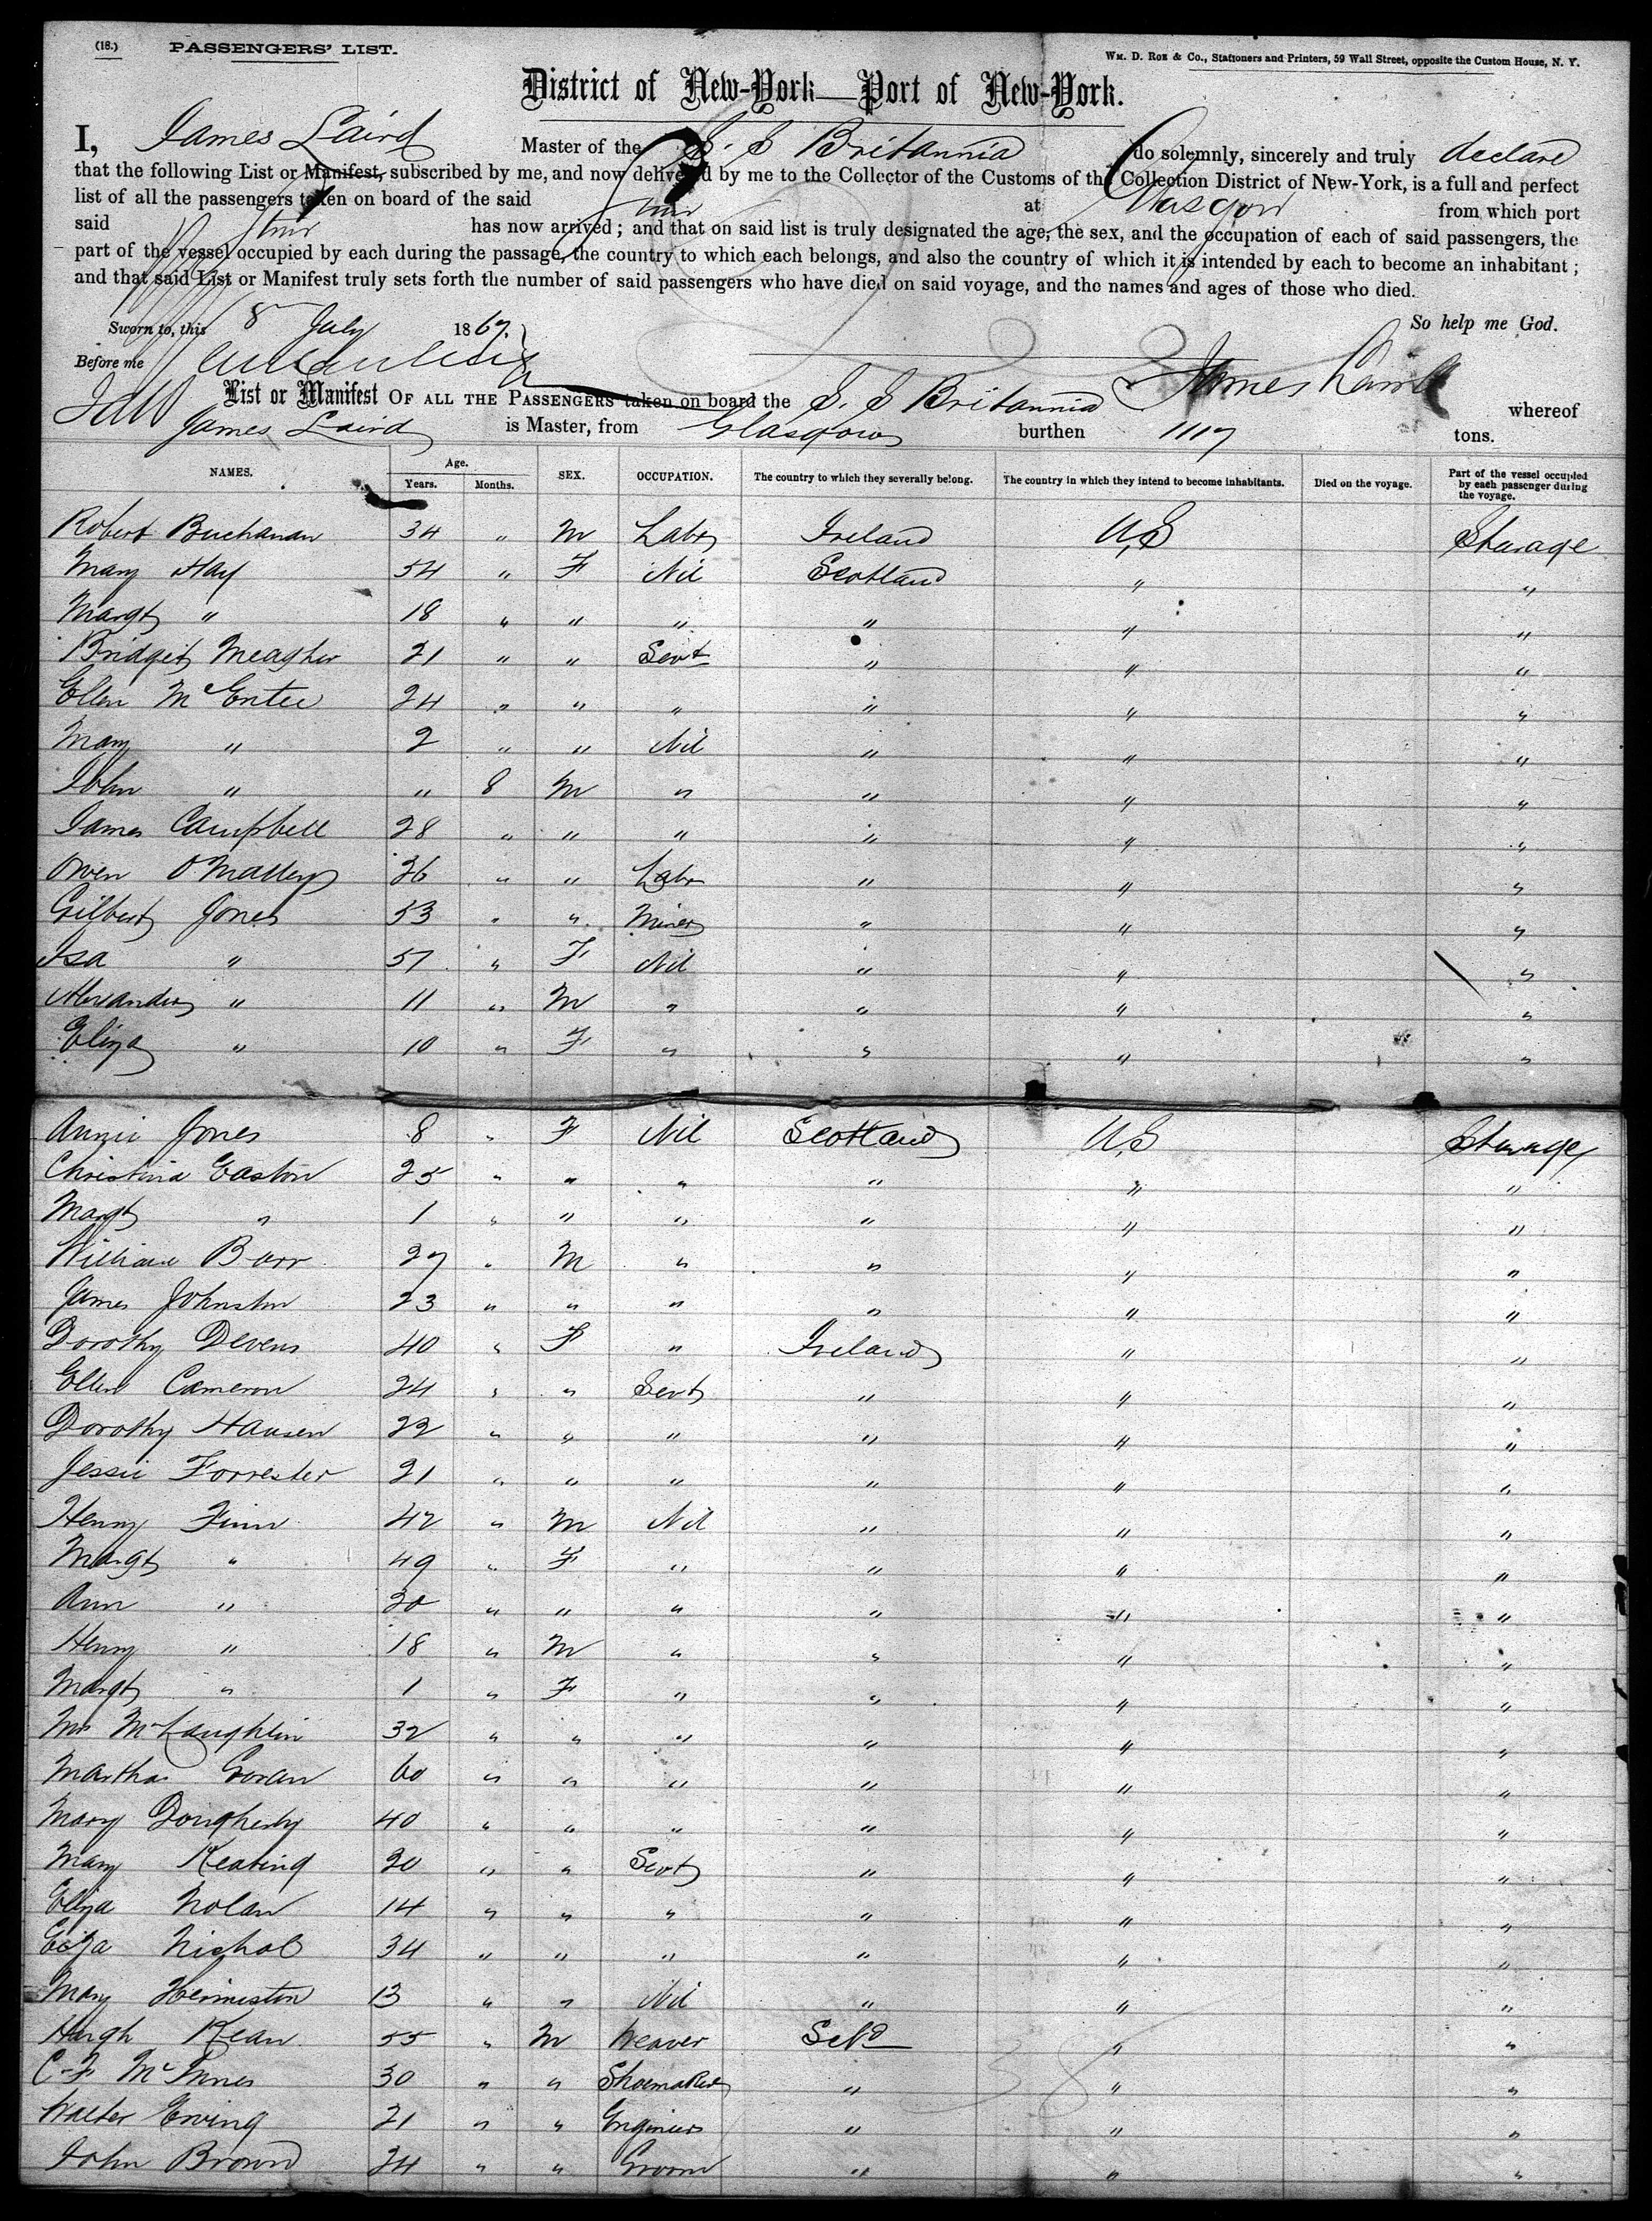 (18.) PASSENGERS' LIST. WM. D. ROE & Co., Stationers and Printers, 59 Wall Street, opposite the Custom House, N. Y.
District of New-York—Port of New-York.
I, James Laird Master of the S. S Britannia do solemnly, sincerely and truly declare
that the following List or Manifest, subscribed by me, and now delivered by me to the Collector of the Customs of the Collection District of New-York, is a full and perfect
list of all the passengers taken on board of the said Str at Glasgow from which port
said Str has now arrived; and that on said list is truly designated the age, the sex, and the occupation of each of said passengers, the
part of the vessel occupied by each during the passage, the country to which each belongs, and also the country of which it is intended by each to become an inhabitant;
and that said List or Manifest truly sets forth the number of said passengers who have died on said voyage, and the names and ages of those who died.
Sworn to, this 8 July 1867. So help me God.
Before me James Laird
List or Manifest OF ALL THE PASSENGERS taken on board the S. S Britannia whereof
James Laird is Master, from Glasgow burthen 1117 tons.
NAMES. Age. Years. Months. SEX. OCCUPATION. The country to which they severally belong. The country in which they intend to become inhabitants. Died on the voyage. Part of the vessel occupied by each passenger during the voyage.
Robert Buchanan 34 " M Labr Ireland U,S Steerage
Mary Hay 54 " F Nil Scotland " "
Margt " 18 " " " " " "
Bridget Meagher 21 " " Servt " " "
Ellen McEntee 24 " " " " " "
Mary " 2 " " Nil " " "
John " " 8 M " " " "
James Campbell 28 " " " " " "
Owen O'Malley 36 " " Labr " " "
Gilbert Jones 53 " " Miner " " "
Isa " 57 " F Nil " " "
Alexander " 11 " M " " " "
Eliza " 10 " F " " " "
Annie Jones 8 " F Nil Scotland U,S Steerage
Christina Easton 25 " " " " " "
Margt " 1 " " " " " "
William Barr 27 " M " " " "
James Johnston 23 " " " " " "
Dorothy Devens 40 " F " Ireland " "
Ellen Cameron 24 " " Servt " " "
Dorothy Hansen 22 " " " " " "
Jessie Forrester 21 " " " " " "
Henry Finn 42 " M Nil " " "
Margt " 49 " F " " " "
Ann " 20 " " " " " "
Henry " 18 " M " " " "
Margt " 1 " F " " " "
Mrs McLaughlin 32 " " " " " "
Martha Goran 60 " " " " " "
Mary Dougherty 40 " " " " " "
Mary Keating 20 " " Servt " " "
Eliza Nolan 14 " " " " " "
Eliza Nichol 34 " " " " " "
Mary Hermiston 13 " " Nil " " "
Hugh Kean 55 " M Weaver Scotd " "
C-F McInnes 30 " " Shoemaker " " "
Walter Ewing 21 " " Engineer " " "
John Brown 24 " " Groom " " "